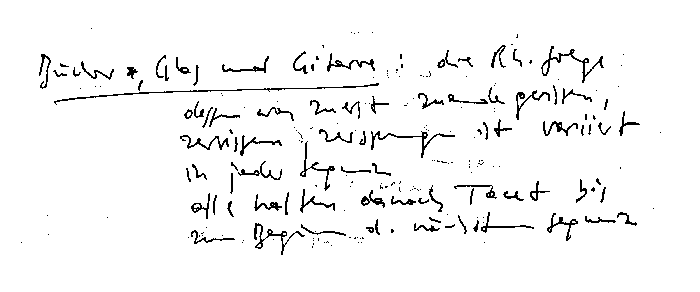 Bücher *, Glas und Gitarre : die Rh.folge
dessen was zuerst zuende gerissen,
zerrissen, zersprungen ist variiert
in jeder Sequenz
alle halten danach Tacet bis
zum Beginn d. nächsten Sequenz